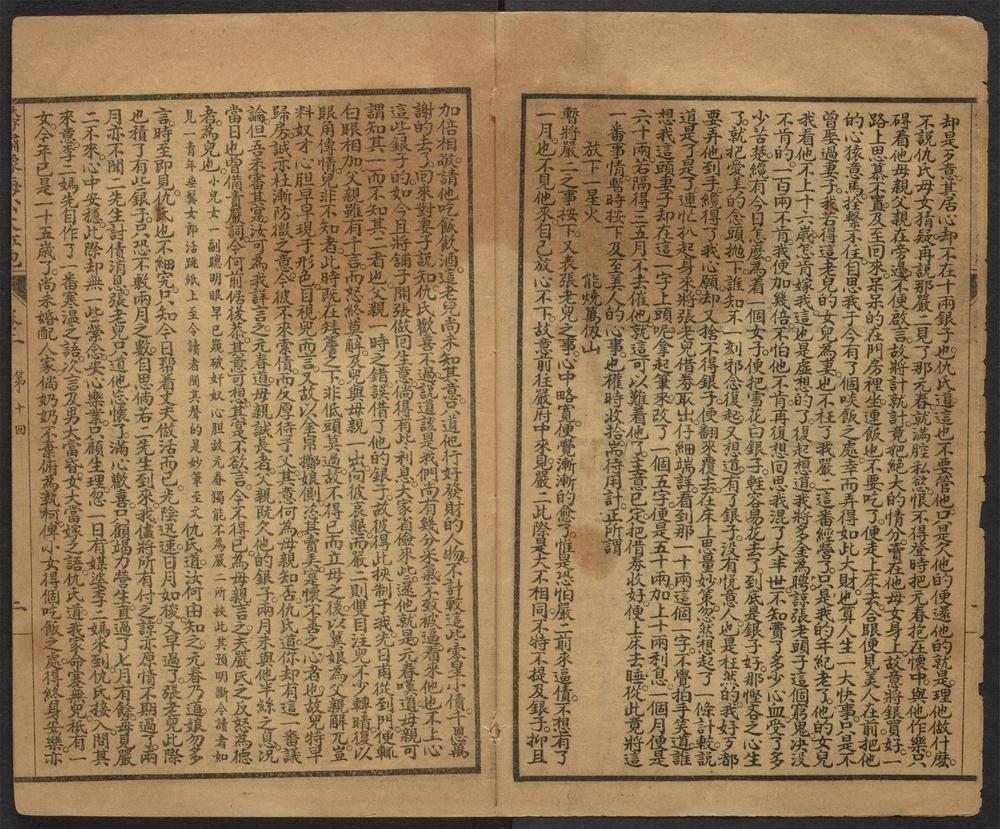 却是歹意其居心却不在十兩銀子也仇氏道這也不要管他只是欠他的便還他的就是理他做什麽
不說仇氏母女猜疑再說那嚴二見了那元春就滿腔私慾恨不得登時把元春抱在懷中與他作樂只
碍着他母親父親在旁邊不便啟言故將計就計竟把絕大的情分賣在他母女身上故意將銀買好一
路上思慕不置及至回來呆呆的在門房裡坐連飯也不要吃了便走上床去合眼便見美人在前把他
的心猿意馬拴繫不住自思我于今有了個啖飯之處幸而弄得如此大財也算人生一大快事只是不
曾娶過妻子我若得這老兒的女兒為妻也不枉了我嚴二這一番經營了只是我的年紀老了他的女兒
我看他不上十六歲怎肯嫁我這也是虛想的了復起想道我將多金為聘諒張老頭子這個窮鬼決沒
不肯的一百兩不肯我便加幾倍不怕他不肯再復想回思我混了大半世不知費了多少心血受了多
少苦楚纔有今日怎麽為着一個女子便把雪花白銀子輕容易花去了到底是銀子好那慳吝之心生
了就把愛美的念頭拋下誰知不一刻邪念復起又想道有了銀子沒有悅意人也是枉然的我好歹都
要弄他到手纔得了我心願却又捨不得銀子便翻來覆去在床上思量妙策忽然想起了一條計較說
道是了是了連忙扒起身來將張老兒借券取出仔細端詳看到那一十兩這個一字不覺拍手笑道誰
想我這頭妻子却在這一字上頭呢拿起筆來改了一個五字便是五十兩加上十兩利息一個月便是
六十兩若隔得三五月不去催他就這可以難着他了主意已定把借券收好便上床去睡從此竟將這
一番事情暫時按下及至美人的心事也權時收拾而待用計正所謂
放下一星火　能燒萬仭山
暫將嚴二之事按下又表張老兒之事心中略寬便覺漸漸的愈了惟是恐怕嚴二前來逼債不想有了
一月也不見他來自己放心不下故意前往嚴府中來見嚴二此際是大不相同不特不提及銀子抑且
加倍相敬請他吃飯飲酒這老兒尚未知其意只道他仟好發財的人物不計較這些零星小債千恩萬
謝的去了回來對妻子說知仇氏歡喜不過說道該是我們尚有幾分米氣不致被逼看來他也不上心
這些銀子的如今且將鋪子開張做回生意倘得有些利息大家省儉來此還他就是元春嘆道母親可
謂知其一而不知其二者也父親一時之錯誤借了他的銀子故彼得此挾制于我先日甫從到門便輒
白眼相加父親雖有千言而怒終莫解及兒與母親一出向彼哀懇而嚴二則雙目注兒不少轉睛復以
眼角傳情兒非不知者此時既在矮簷之下非低頭莫過故不得已而立母之後以冀娘為父親解兀豈
料奴才心胆早早現于形色目視兒而言又故以金帛擲娘側洛其賣美寔懷不善之心者也故兒特早
歸房誠亦杜漸防微之意今彼不來索債而反厚待于父其意何為母親知否仇氏道你却有這一番議
論但吾未審其寔汝可為我詳言之元春道母親誠長者父親既欠他的銀子兩月未與他半絲之息況
當日也曾備責嚴詞今何前倨後恭其意可想其寔不欲言今不得已為母親言之夫嚴氏之反怒為德
者為兒也小兒女一副聰明眼早已覷破奸奴心胆故元春獨能不為嚴二所挾此其預明斷令讀者如見一青年垂鬟女郎活跳紙上至令讀者聞其聲的是妙筆至文仇氏道汝何由知之元春乃道娘勿多
言時至即見仇氏也不細究只知今日幫着丈夫做活而已光陰迅速日月如梭又早過了張老兒此際
也積了有些銀子只恐不敷兩月之數自思倘若二先生到來我儘將所有付之諒亦原情不期過了兩
月亦不聞二先生討債消息張老兒只道他忘懷了滿心歡喜只顧竭力營生直過了七月有餘毋見嚴
二不來心中安穩此際却無一些縈念安心樂業只顧生理忽一日有媒婆李二媽來到仇氏接入問其
來意李二媽先自作了一番寒温之語次言及男大當婚女大當嫁之語仇氏道我家命寔無兒秪有一
女今年已是一十五歲了尚未婚配人家倘奶奶不棄俯為執柯俾小女得個吃飯之處得終身安樂亦
第十回
二